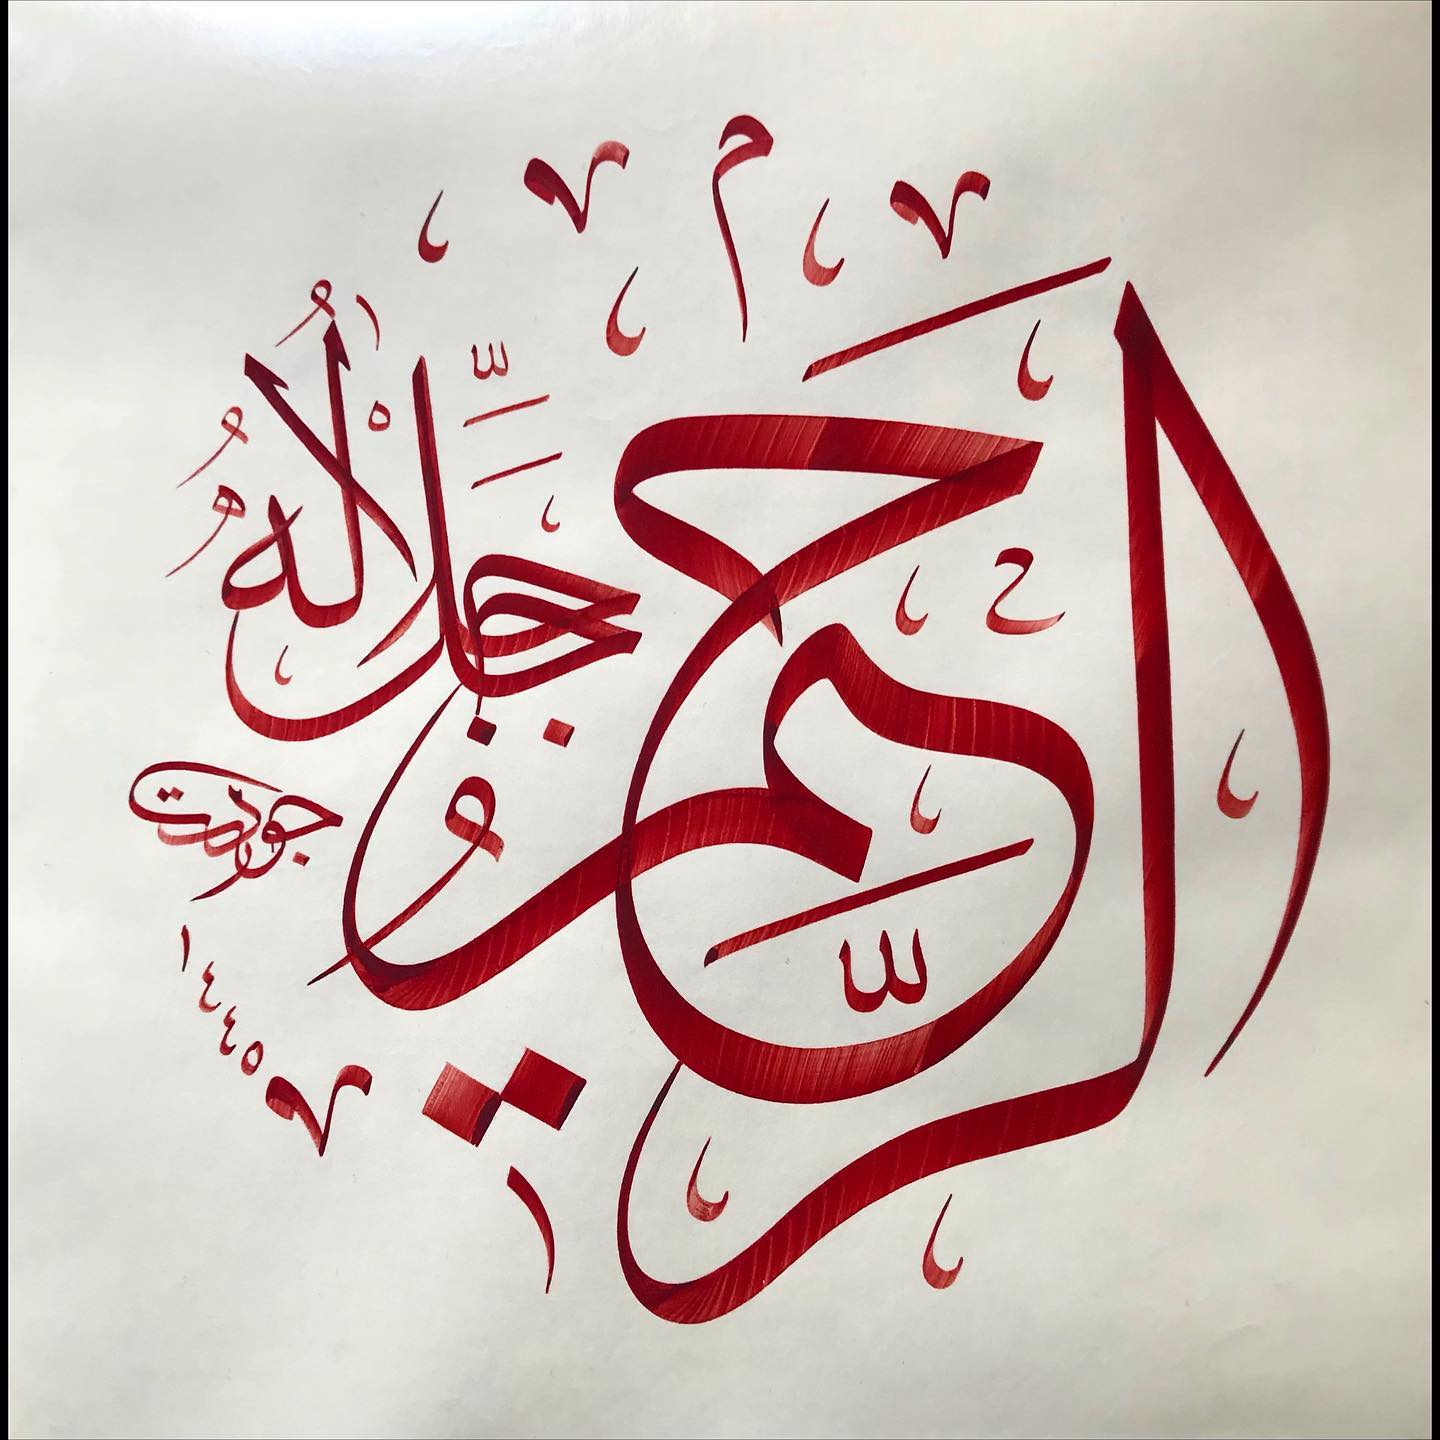 الرَّحِيمُ
جَلَّ جَلَالُهُ
جودت
١٤٤٥